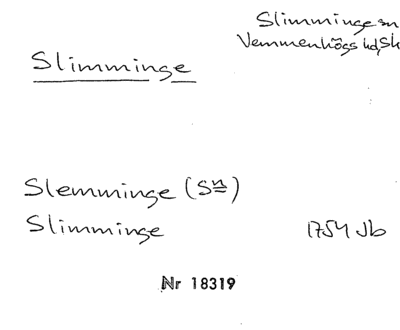 Slimminge sn
Vemmenhögs hd, Sk
Slimminge
Slemminge (Sn)
Slimminge 1754 Jb
Nr 18319